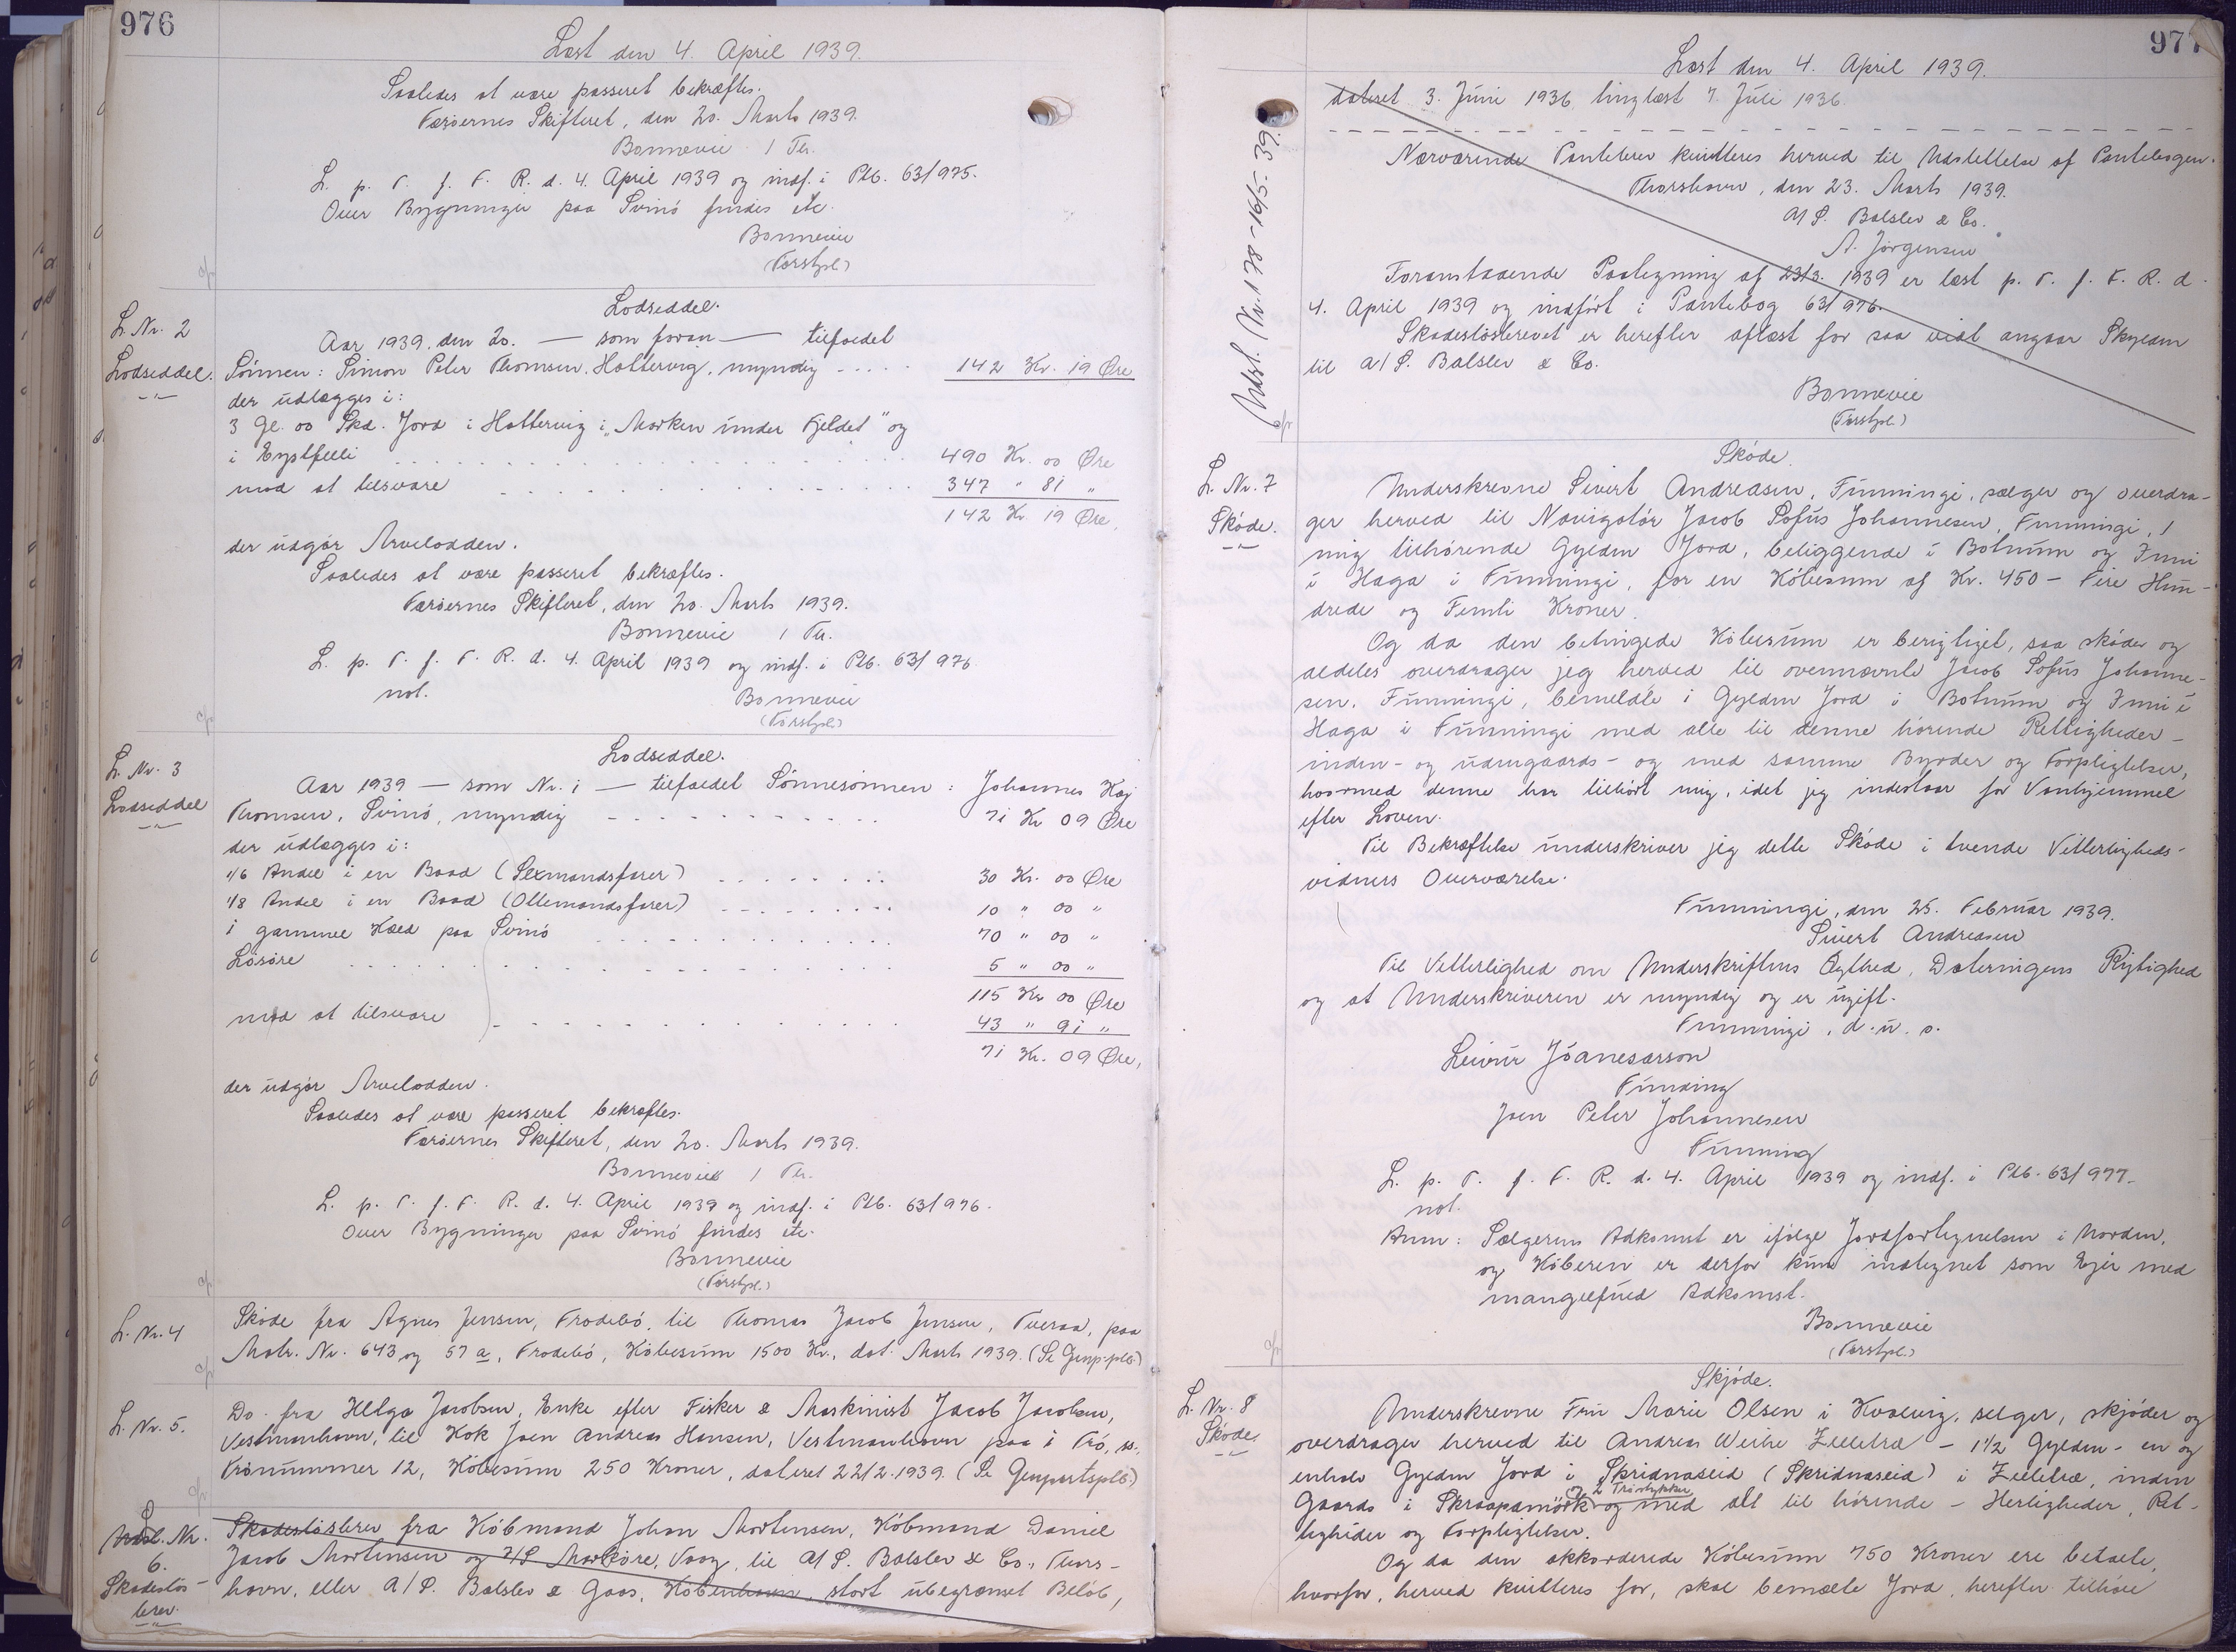 976
Læst den 4. April 1939.
Saaledes at være passeret bekræftes.
Færöernes Skifteret, den 20. Marts 1939.
Bonnevie / Th.
L. p. T. f. F. R. d. 4. April 1939 og indf. i Ptb. 63/975.
Over Bygninger paa Svinö findes etc.
Bonnevie
(Forstpl.)
L. Nr. 2
Lodseddel.
Lodseddel.
Aar 1939, den 20. — som foran — tilfaldet
Sönnen: Simon Peter Thomsen, Hattervig, myndig - - - - 142 Kr. 19 Øre
der udlægges i:
3 Gl. 00 Skd. Jord i Hattervig i „Marken under Fjeldet" og
i Eystfelli . . . . 490 Kr. 00 Øre
mod at tilsvare . . . . 347 " 81 "
142 Kr 19 Øre,
der udgör Arvelodden.
Saaledes at være passeret bekræftes.
Færöernes Skifteret, den 20. Marts 1939.
Bonnevie / Th.
L. p. T. f. F. R. d. 4. April 1939 og indf. i Ptb. 63/976
not.
Bonnevie
(Forstpl.)
L. Nr. 3
Lodseddel
Lodseddel.
Aar 1939 — som Nr. 1 — tilfaldet Sönnesönnen: Johannes Kaj
Thomsen, Svinö, myndig - - - - 71 Kr 09 Øre
der udlægges i:
1/6 Andel i en Baad (Sexmandsfarer) . . . . 30 Kr. 00 Øre
1/8 Andel i en Baad (Ottemandsfarer) . . . . 10 " 00 "
1 gammel Kæld paa Svinö . . . . 70 " 00 "
Lösöre . . . . 5 " 00 "
115 Kr 00 Øre
mod at tilsvare . . . . 43 " 91 "
71 Kr. 09 Øre,
der udgör Arvelodden.
Saaledes at være passeret bekræftes.
Færöernes Skifteret, den 20. Marts 1939.
Bonnevie / Th.
L. p. T. f. F. R. d. 4. April 1939 og indf. i Ptb. 63/976.
Over Bygninger paa Svinö findes etc.
Bonnevie
(Forstpl.)
L. Nr. 4
Sköde fra Agnes Jensen, Frodebö, til Thomas Jacob Jensen, Tveraa, paa
Matr. Nr. 643 og 57 a, Frodebö, Köbesum 1500 Kr., dat. Marts 1939. (Se Genp.ptb.)
L. Nr. 5.
Do. fra Helga Jacobsen, Enke efter Fisker & Maskinist Jacob Jacobsen,
Vestmanhavn, til Kok Joen Andreas Hansen, Vestmanhavn paa 1 Trö, ss.
Trönummer 12, Köbesum 250 Kroner, dateret 22/2-1939. (Se Genpartsptb.)
L. Nr.
6.
Skadeslös-
brev.
Skadeslösbrev fra Köbmand Johan Mortensen, Köbmand Daniel
Jacob Mortensen og I/S Marköre, Vaag, til A/S. Balslev & Co., Thors-
havn, eller A/S. Balslev & Gaas, Köbenhavn, stort ubegrænset Belöb,
977
Læst den 4. April 1939.
dateret 3. Juni 1936 tinglæst 7. Juli 1936.
Nærværende Pantebrev kvitteres herved til Udslettelse af Pantebogen.
Thorshavn, den 23. Marts 1939.
A/S. Balslev & Co.
A. Jörgensen
Foranstaaende Paategning af 23/3. 1939 er læst p. T. f. F. R. d.
4. April 1939 og indfört i Pantebog 63/976.
Skadeslösbrevet er herefter aflæst for saa vidt angaar Skylden
til A/S. Balslev & Co.
Bonnevie
(Forstpl.)
Udsl. Nr. 178 - 16/5-39.
L. Nr. 7
Sköde.
Sköde.
Underskrevne Sivert Andreasen, Funningi, sælger og overdra-
ger herved til Navigatör Jacob Sofus Johannesen, Funningi, 1
mig tilhörende Gylden Jord, beliggende i Botnum og Inni
i Haga i Funningi, for en Köbesum af Kr. 450 - Fire Hun-
drede og Femti Kroner.
Og da den betingede Köbesum er berigtiget, saa sköder og
aldeles overdrager jeg herved til ovennævnte Jacob Sofus Johanne-
sen, Funningi, bemeldte 1 Gylden Jord i Botnum og Inni i
Haga i Funningi med alle til denne hörende Rettigheder -
inden- og udengaards - og med samme Byrder og Forpligtelser,
hvormed denne har tilhört mig, idet jeg indestaar for Vanhjemmel
efter Loven.
Til Bekræftelse underskriver jeg dette Sköde i tvende Vitterligheds-
vidners Overværelse.
Funningi, den 25. Februar 1939.
Sivert Andreasen
Til Vitterlighed om Underskriftens Ægthed, Dateringens Rigtighed
og at Underskriveren er myndig og er ugift.
Funningi, d. u. s.
Leivur Jóanesarson
Funding
Joen Peter Johannesen
Funning
L. p. T. f. F. R. d. 4. April 1939 og indf. i Ptb. 63/977.
not.
Anm: Sælgerens Adkomst er ifölge Jordfortegnelsen i Norden,
og Köberen er derfor kun indtegnet som Ejer med
mangelfuld Adkomst.
Bonnevie
(Forstpl.)
L. Nr. 8
Sköde
Skjöde.
Underskrevne Fru Marie Olsen i Kvalvig, selger, skjöder og
overdrager herved til Andreas Weihe Zelletræ - 1 1/2 Gylden - en og
enhalv Gylden Jord i Skridnaseid (Skridnaseid) i Zelletræ, inden
og 2 Tröstykker
Gaards i Skraapamörk og med alt til hörende - Herligheder, Ret-
tigheder og Forpligtelser.
Og da den akkorderede Köbesum 750 Kroner ere betaelt,
hvorfor, herved kvitteres for, skal bemælte Jord, herefter tilhöre